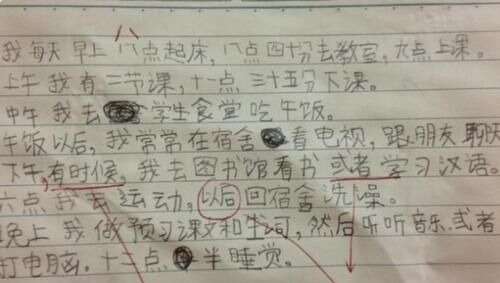 我每天早上八点起床，八点四十分去教室，九点上课。
上午我有二节课，十一点三十五分下课。
中午我去学生食堂吃午饭。
午饭以后，我常常在宿舍看电视，跟朋友聊天
下午，有时候，我去图书馆看书或者学习汉语。
六点我去运动，以后回宿舍洗澡。
晚上我做预习课文和生词，然后听听音乐，或者
打电脑。十二点半睡觉。